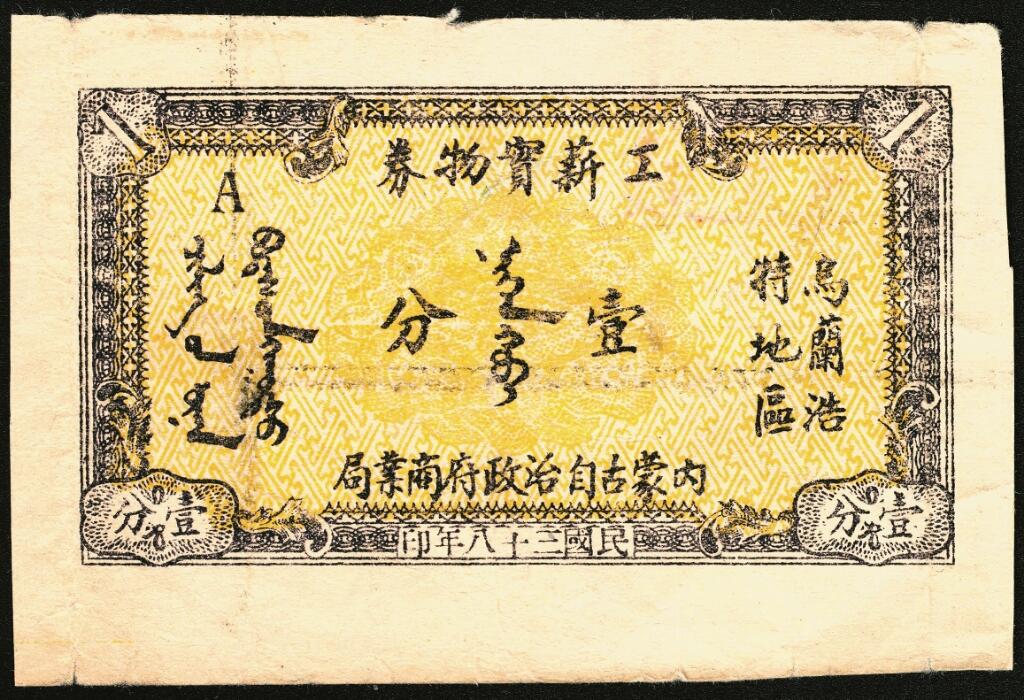 1
1
工薪實物券
A
烏蘭浩
特地區
壹分
內蒙古自治政府商業局
壹分
壹分
民國三十八年印